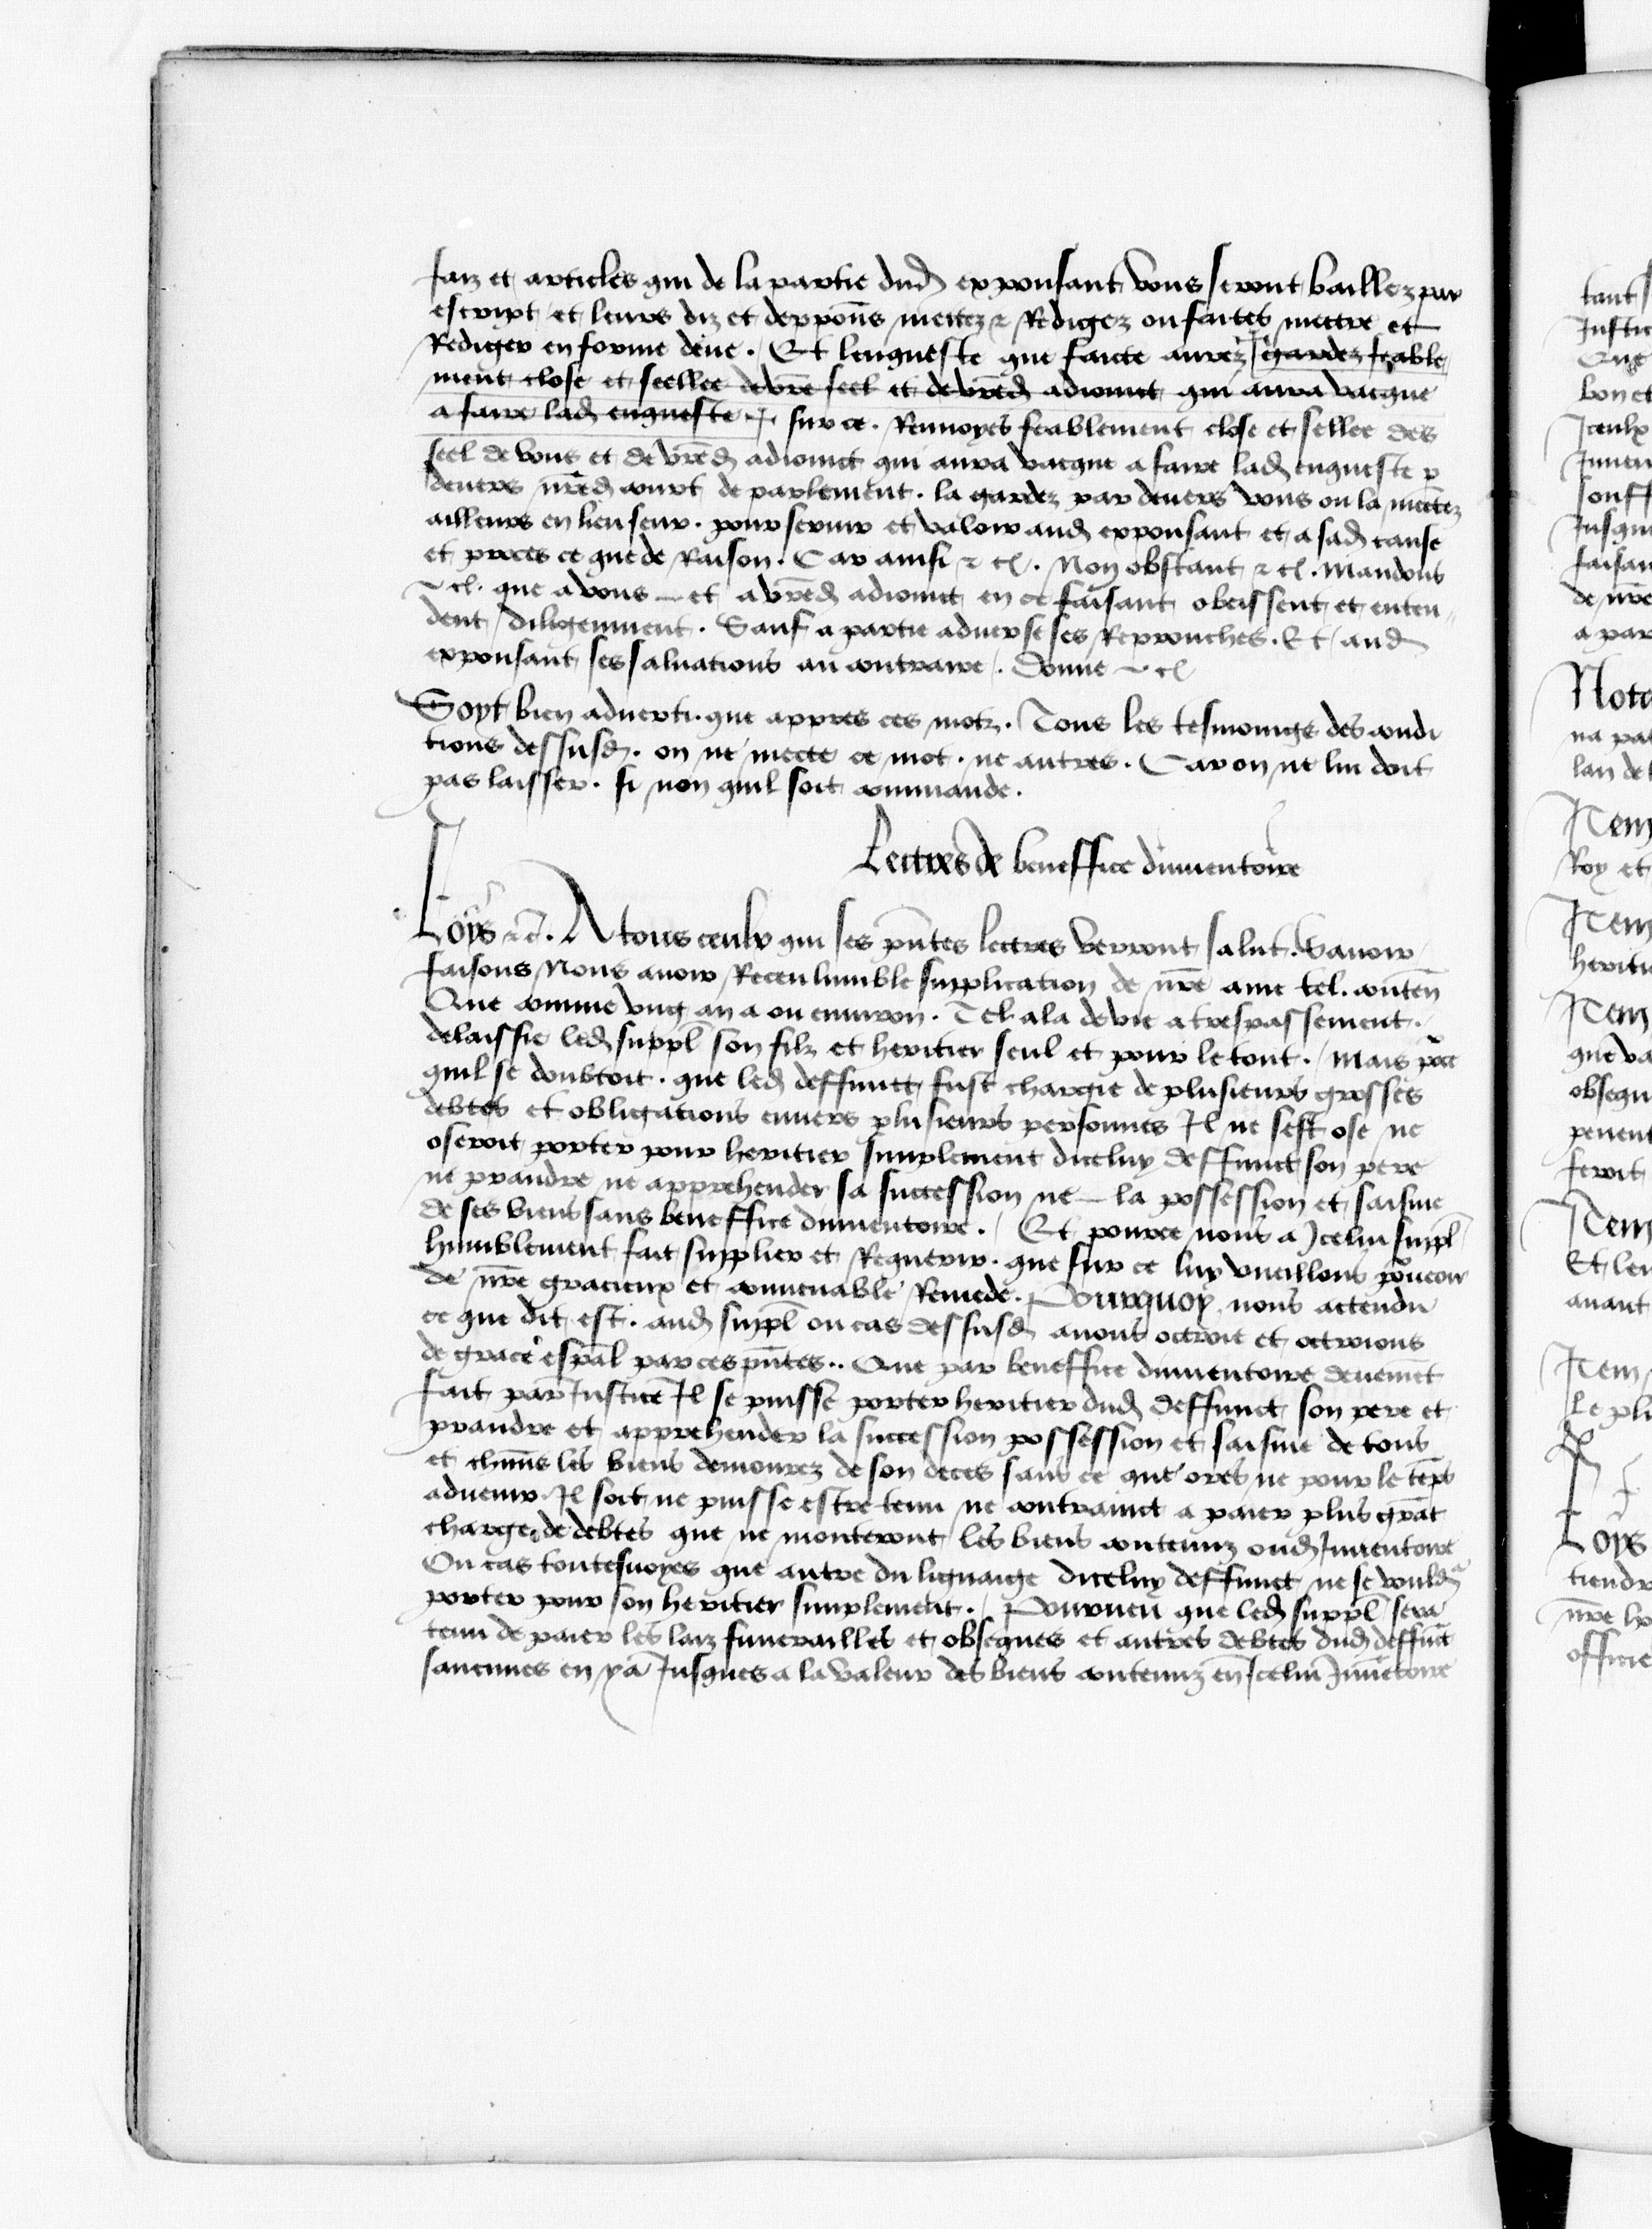 faiz et articles qui de la partie dud exponsant vous seront baillez par
escript et leurs diz et depposns mettez & Redigez ou faictes mettre et
Rediger en forme deue. Et lenqueste que faicte aurez gardez feable
ment close et seellee de vre seel et de vred adioinct qui aura vacque
a faire lad enqueste sur ce. Renuoyes feablement close et sellee des
seel de vous et de vred adioinct qui aura vacque a faire lad enqueste p
deuers nred court de parlement. la gardez par deuers vous ou la mectez
ailleurs en lieu seur. pour seruir et valoir aud exponsant et a sad cause
et proces ce que de Raison. Car ainsi & cl. Non obstant & cl. Mandons
& cl. que a vous et a vred adioinct en ce faisant obeissent et enten
dent diligenment. Sauf a partie aduerse ses Reprouches. Et aud
exponsant ses saluations au contraire. Donne & cl
Soyt bien aduerti. que appres ces motz. Tous les tesmoings des condi
tions dessusd. on ne mecte ce mot. ne autres. Car on ne lui doit
pas laisser. si non quil soit conmande.
Lectres de beneffice dinuentoire
Loys &c. A tous ceulx qui ses pntes lectres verront salut. Sauoir
faisons Nous auoir Receu lumble supplication de nre ame tel. conten
Que comme vng an a ou enuiron. Tel ala de vie a trespassement.
delaissie led suppl son filz et heritier seul et pour le tout. Mais pource
quil se doubtoit. que led deffunct fust chargie de plusieurs grosses
debtes et obligations enuers plusieurs personnes Il ne sest ose ne
oseroit porter pour heritier simplement diceluy deffunct son pere
ne prandre ne apprehender sa succession ne la possession et saisine
de ses biens sans beneffice dinuentoire. Et pource nous a Icelui suppl
humblement fait supplier et Requerir. que sur ce luy vueillons pourueoir
de nre gracieux et conuenable Remede. Pourquoy nous actendu
ce que dit est. aud suppl ou cas dessusd auons octroie et octroions
de grace espal par ces pntes.. Que par beneffice dinuentoire deuement
fait par Justice Il se puisse porter heritier dud deffunct son pere et
prandre et apprehender la succession possession et saisine de tous
et chuns les biens demourez de son deces sans ce que ores ne pour le temps
aduenir Il soit ne puisse estre tenu ne contrainct a paier plus grat
charge de debtes que ne monteront les biens contenuz oud Inuentoire
Ou cas toutesuoyes que autre du lignaige diceluy deffunct ne se vouldra
porter pour son heritier simplement. Pourueu que led suppl sera
tenu de paier les laiz funerailles et obseques et autres debtes dud deffunct
Jusques a la valeur des biens contenuz en Icelui Inuetoire